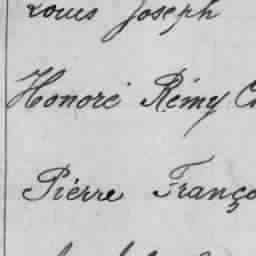 Louis Joseph
Honoré Rémy
Pierre Franço